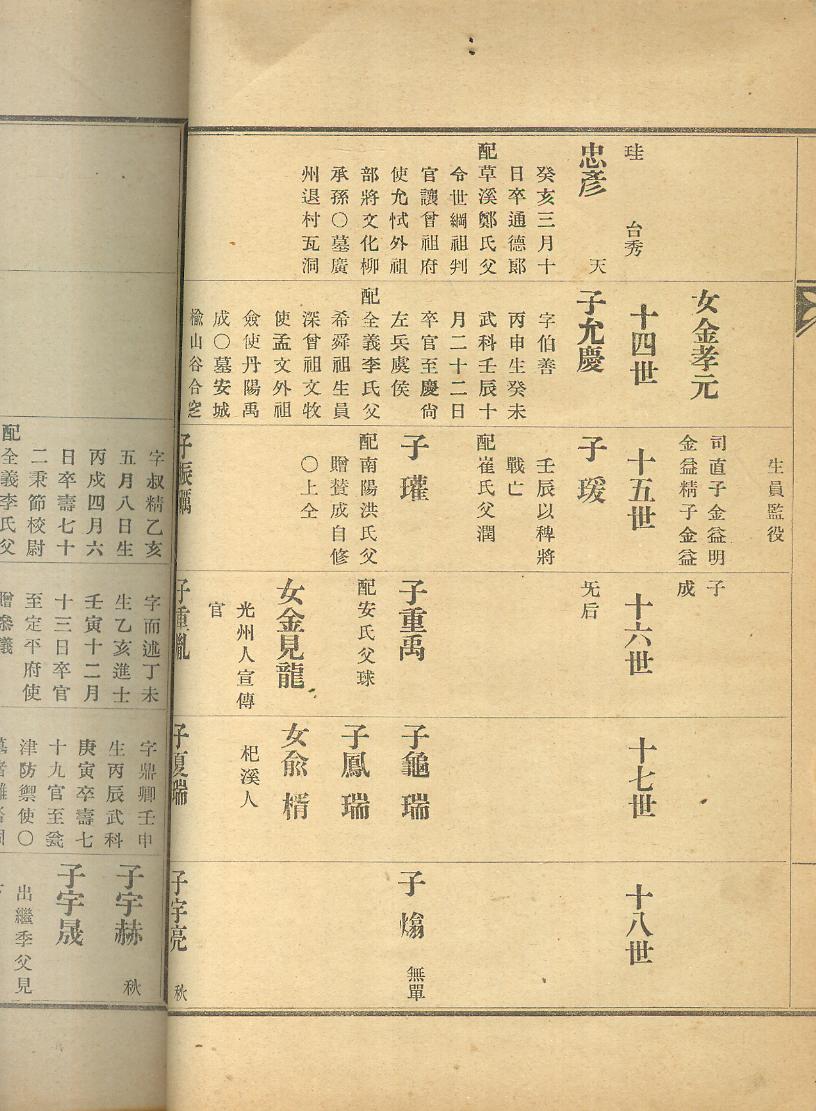 珪 台秀
忠彦 天
癸亥三月十
日卒通德郞
配草溪鄭氏父
令世綱祖判
官讓曾祖府
使允恜外祖
部將文化柳
承孫〇墓廣
州退村瓦洞
女金孝元
十四世
子允慶
字伯善
丙申生癸未
武科壬辰十
月二十二日
卒官至慶尙
左兵虞侯
配全義李氏父
希舜祖生員
深曾祖文牧
使孟文外祖
僉使丹陽禹
成〇墓安城
楡山谷合窆
生員監役
司直子金益明
金益精子金益
十五世
子瑗
壬辰以稗將
戰亡
配崔氏父潤
子瓘
配南陽洪氏父
贈賛成自修
〇上仝
子
成
十六世
旡后
子重禹
配安氏父球
女金見龍
光州人宣傳
官
十七世
子龜瑞
子鳳瑞
女兪楈
杞溪人
十八世
子熻 無單
子重胤
子夏瑞
子宇亮 秋
字叔精乙亥
五月八日生
丙戍四月六
日卒壽七十
二秉節校尉
配全義李氏父
字而述丁未
生乙亥進士
壬寅十二月
十三日卒官
至定平府使
贈參議
字鼎卿壬申
生丙辰武科
庚寅卒壽七
十九官至瓮
津防禦使〇
子宇赫 秋
子宇晟
出繼季父見